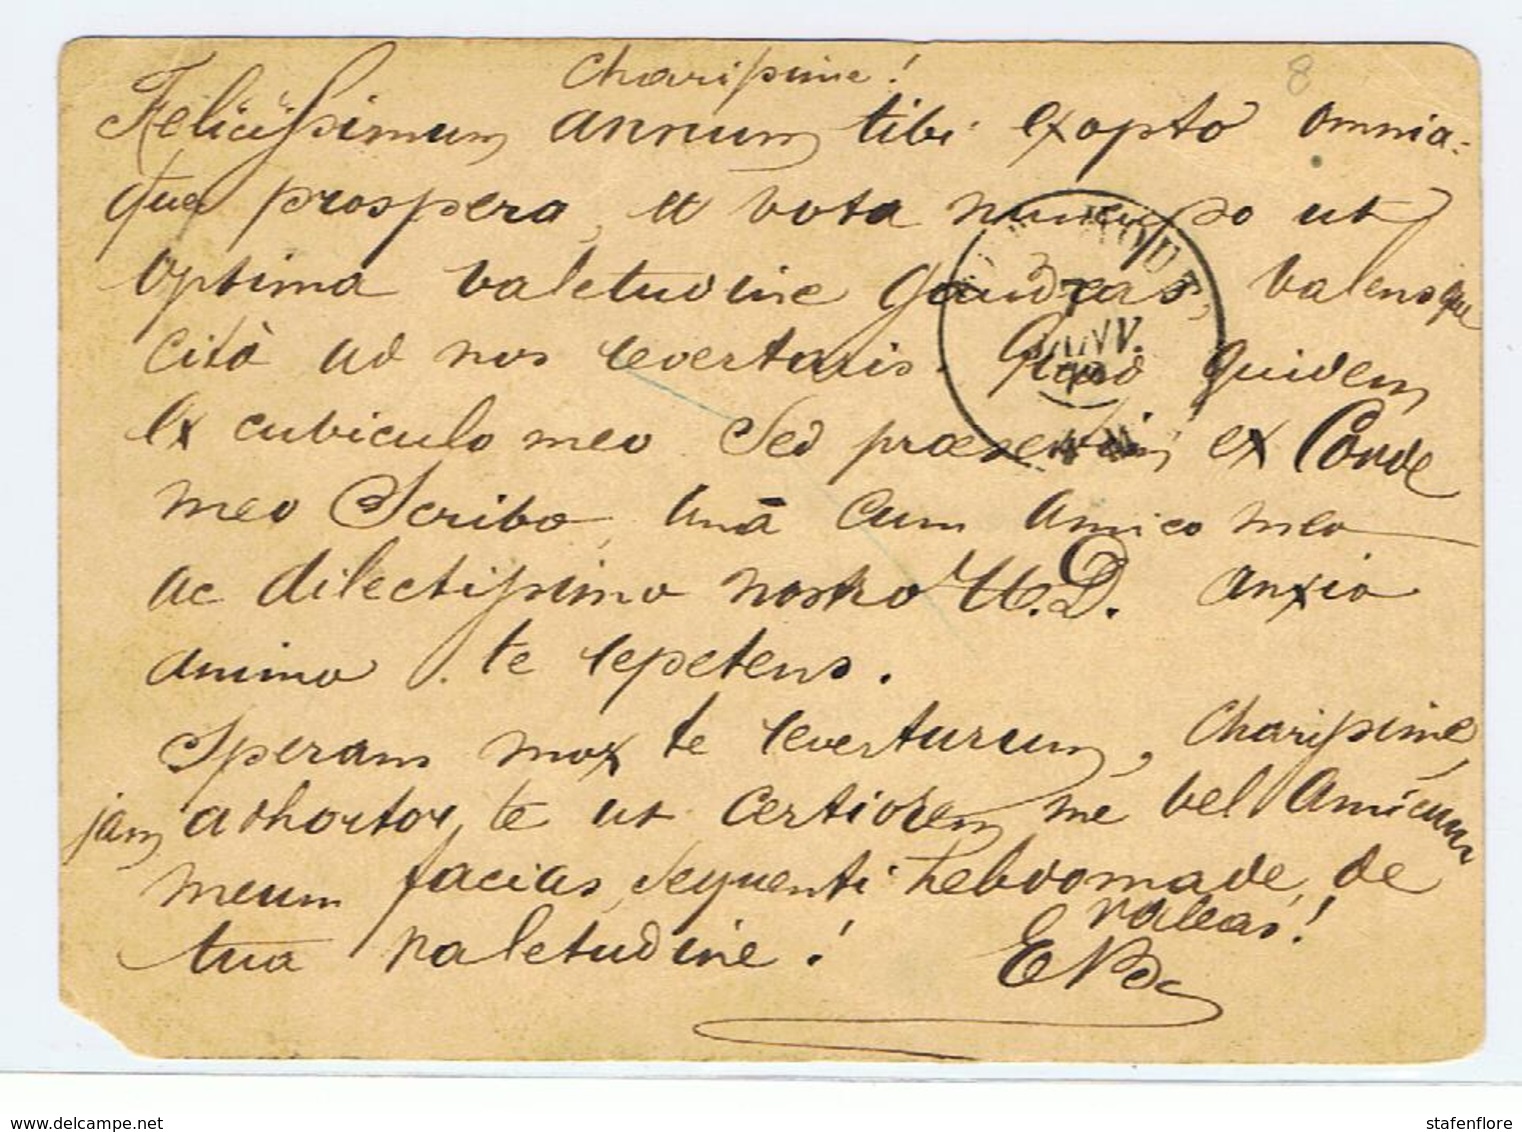 Charissime!
8
Felicissimum annum tibi exopto omnia-
que prospera, et vota nuncupo ut
optima valetudine gaudeas, valensque
citò ad nos revertaris. Quod quidem
ex cubiculo meo. Sed praesertim ex Corde
meo Scribo, unâ cum amico meo
ac dilectissimo nostro D. anxio
animo te repetens.
Sperans mox te reverturum, Charissime,
jam adhortor te ut certiorem me vel Amicum
meum facias, sequenti hebdomade, de
tua valetudine! valeas!
JANV.
www.delcampe.net
stafenflore